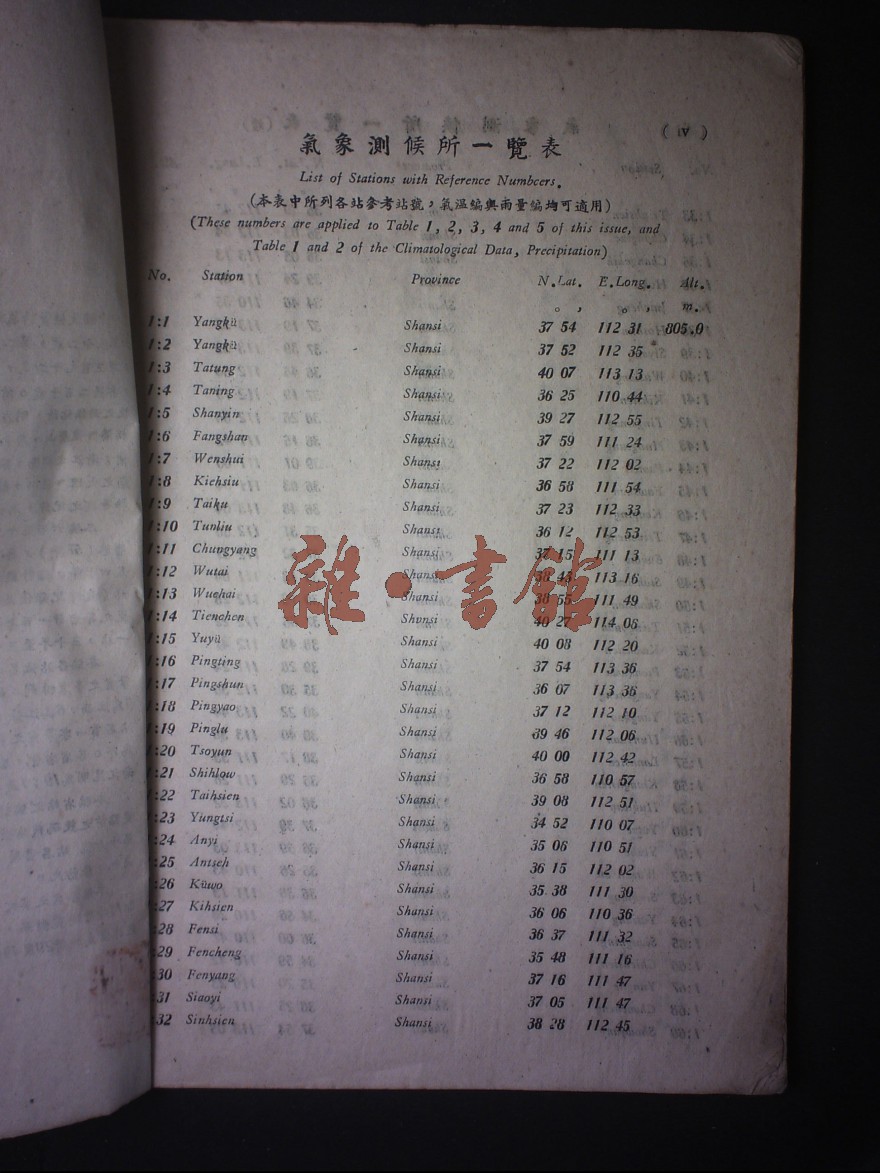 ( iv )
氣象測候所一覽表
List of Stations with Reference Numbcers.
(本表中所列各站參考站號，氣溫編與雨量編均可適用)
(These numbers are applied to Table 1, 2, 3, 4 and 5 of this issue, and
Table 1 and 2 of the Climatological Data, Precipitation)
No. Station Province N.Lat. E.Long. Alt.
o , o , m.
1:1 Yangkü Shansi 37 54 112 31 805.0
1:2 Yangkü Shansi 37 52 112 35
1:3 Tatung Shansi 40 07 113 13
1:4 Taning Shansi 36 25 110 44
1:5 Shanyin Shansi 39 27 112 55
1:6 Fangshan Shansi 37 59 111 24
1:7 Wenshui Shansi 37 22 112 02
1:8 Kiehsiu Shansi 36 58 111 54
1:9 Taiku Shansi 37 23 112 33
1:10 Tunliu Shansi 36 12 112 53
1:11 Chungyang Shansi 37 15 111 13
1:12 Wutai Shansi 38 43 113 16
1:13 Wuchai Shansi 38 55 111 49
1:14 Tienchen Shansi 40 27 114 08
1:15 Yuyü Shansi 40 08 112 20
1:16 Pingting Shansi 37 54 113 36
1:17 Pingshun Shansi 36 07 113 36
1:18 Pingyao Shansi 37 12 112 10
1:19 Pinglu Shansi 39 46 112 06
1:20 Tsoyun Shansi 40 00 112 42
:21 Shihlow Shansi 36 58 110 57
:22 Taihsien Shansi 39 08 112 51
:23 Yungtsi Shansi 34 52 110 07
:24 Anyi Shansi 35 06 110 51
:25 Antseh Shansi 36 15 112 02
:26 Küwo Shansi 35 38 111 30
:27 Kihsien Shansi 36 06 110 36
:28 Fensi Shansi 36 37 111 32
:29 Fencheng Shansi 35 48 111 16
:30 Fenyang Shansi 37 16 111 47
:31 Siaoyi Shansi 37 05 111 47
:32 Sinhsien Shansi 38 28 112 45
雜·書館